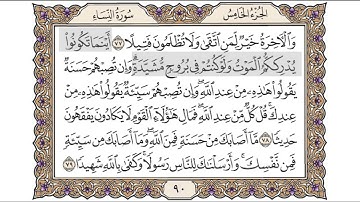 الجزء الخامس
سورة النساء
وَالْآخِرَةُ خَيْرٌ لِّمَنِ اتَّقَىٰ وَلَا تُظْلَمُونَ فَتِيلًا ٧٧ أَيْنَمَا تَكُونُوا
يُدْرِككُّمُ الْمَوْتُ وَلَوْ كُنتُمْ فِي بُرُوجٍ مُّشَيَّدَةٍ وَإِن تُصِبْهُمْ حَسَنَةٌ
يَقُولُوا هَٰذِهِ مِنْ عِندِ اللَّهِ وَإِن تُصِبْهُمْ سَيِّئَةٌ يَقُولُوا هَٰذِهِ مِنْ
عِندِكَ قُلْ كُلٌّ مِّنْ عِندِ اللَّهِ فَمَالِ هَٰؤُلَاءِ الْقَوْمِ لَا يَكَادُونَ يَفْقَهُونَ
حَدِيثًا ٧٨ مَّا أَصَابَكَ مِنْ حَسَنَةٍ فَمِنَ اللَّهِ وَمَا أَصَابَكَ مِن سَيِّئَةٍ
فَمِن نَّفْسِكَ وَأَرْسَلْنَاكَ لِلنَّاسِ رَسُولًا وَكَفَىٰ بِاللَّهِ شَهِيدًا ٧٩
٩٠